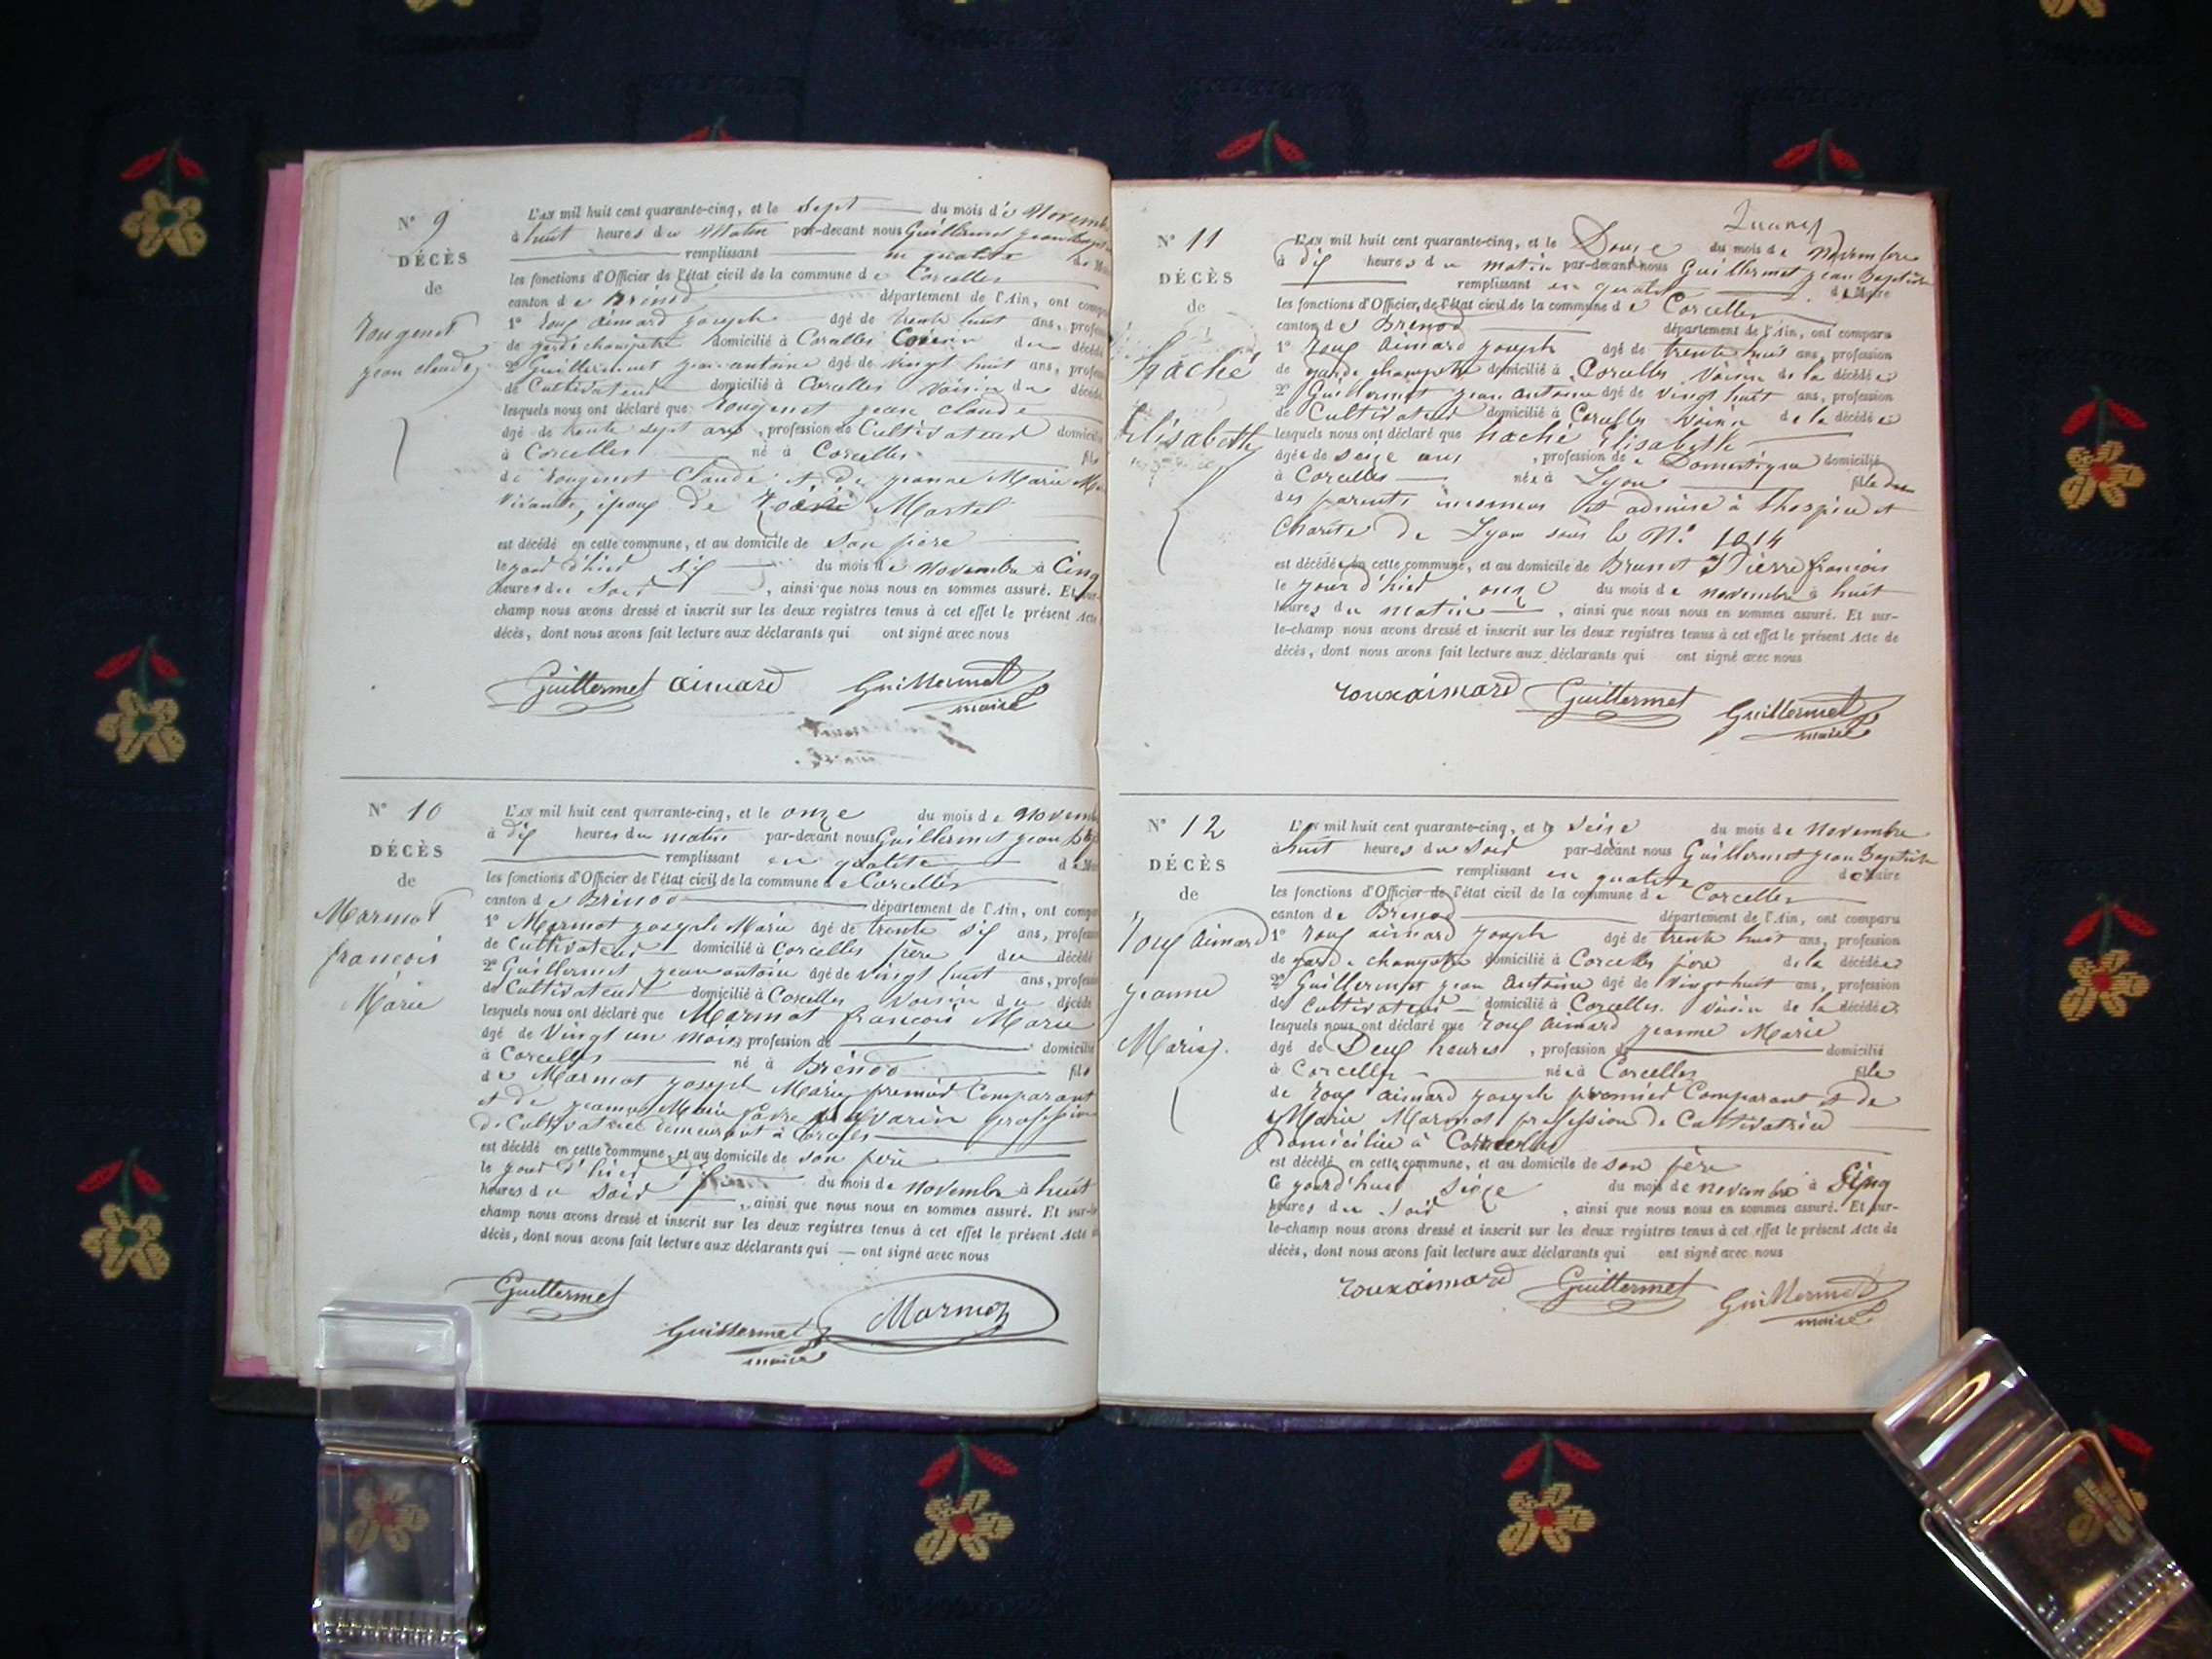 N° 9
DÉCÈS
de
Rougemot
jean claude
L'AN mil huit cent quarante-cinq, et le Sept du mois de Novemb
à huit heures du Matin par-devant nous Guillermet jean
remplissant en qualité de
les fonctions d'Officier de l'état civil de la commune de Corcelles
canton de Brénod département de l'Ain, ont comp
1° Roux aimard joseph âgé de trente huit ans, profes
de garde champêtre domicilié à Corcelles du décédé
2° Guillermet jean antoine âgé de vingt huit ans, profes
de Cultivateur domicilié à Corcelles voisin du décédé
lesquels nous ont déclaré que jean claude
âgé de trente sept ans, profession de Cultivateur domicilié
à Corcelles né à Corcelles fils
de Claude et de jeanne Marie
vivante, époux de Martel
est décédé en cette commune, et au domicile de son père
le jour d'hier six du mois de novembre à Cinq
heures du Soir , ainsi que nous nous en sommes assuré. Et sur-
champ nous avons dressé et inscrit sur les deux registres tenus à cet effet le présent Acte
décès, dont nous avons fait lecture aux déclarants qui ont signé avec nous
Guillermet aimard Guillermet
maire
N° 10
DÉCÈS
de
Marmot
francois
Marie
L'AN mil huit cent quarante-cinq, et le onze du mois de Novemb
à dix heures du matin par-devant nous Guillermet jean
remplissant en qualité de
les fonctions d'Officier de l'état civil de la commune de Corcelles
canton de Brénod département de l'Ain, ont comp
1° Marmot joseph Marie âgé de trente six ans, profes
de Cultivateur domicilié à Corcelles père du décédé
2° Guillermet jean antoine âgé de vingt huit ans, profes
de Cultivateur domicilié à Corcelles voisin du décédé
lesquels nous ont déclaré que Marmot francois Marie
âgé de vingt un mois profession de domicilié
à Corcelles né à Brénod fils
de Marmot joseph Marie premier Comparant
et de jeanne Marie profession
de Cultivatrice demeurant à Corcelles
est décédé en cette commune, et au domicile de son père
le jour d'hier dix du mois de novembre à huit
heures du soir , ainsi que nous nous en sommes assuré. Et sur-le
champ nous avons dressé et inscrit sur les deux registres tenus à cet effet le présent Acte
décès, dont nous avons fait lecture aux déclarants qui — ont signé avec nous
Guillermet
Guillermet Marmoz
maire
N° 11
DÉCÈS
de
haché
Elisabeth
L'AN mil huit cent quarante-cinq, et le Douze du mois de Novembre
à dix heures du matin par-devant nous Guillermet jean Baptiste
remplissant en qualité de Maire
les fonctions d'Officier de l'état civil de la commune de Corcelles
canton de Brenod département de l'Ain, ont comparu
1° Roux Aimard joseph âgé de trente huit ans, profession
de garde champêtre domicilié à Corcelles voisin de la décédée
2° Guillermet jean antoine âgé de vingt huit ans, profession
de Cultivateur domicilié à Corcelles voisin de la décédée
lesquels nous ont déclaré que haché Elisabeth
âgée de seize ans , profession de Domestique domicilié
à Corcelles née à Lyon fille
des parents inconnus et admise à l'hospice et
Charité de Lyon sous le N° 1014
est décédée en cette commune, et au domicile de Brunet Pierre francois
le jour d'hier onze du mois de novembre à huit
heures du matin , ainsi que nous nous en sommes assuré. Et sur-
le-champ nous avons dressé et inscrit sur les deux registres tenus à cet effet le présent Acte de
décès, dont nous avons fait lecture aux déclarants qui ont signé avec nous
rouxaimard Guillermet Guillermet
maire
N° 12
DÉCÈS
de
Roux aimard
jeanne
Marie
L'AN mil huit cent quarante-cinq, et le seize du mois de novembre
à huit heures du soir par-devant nous Guillermet jean Baptiste
remplissant en qualité de Maire
les fonctions d'Officier de l'état civil de la commune de Corcelles
canton de Brenod département de l'Ain, ont comparu
1° Roux aimard joseph âgé de trente huit ans, profession
de garde champêtre domicilié à Corcelles père de la décédée
2° Guillermet jean Antoine âgé de vingt huit ans, profession
de Cultivateur domicilié à Corcelles voisin de la décédée
lesquels nous ont déclaré que Roux aimard jeanne Marie
âgé de Deux heures , profession de domicilié
à Corcelles née à Corcelles fille
de Roux aimard joseph premier Comparant et de
Marie Marmot profession de Cultivatrice
Domiciliée à Corcelles
est décédé en cette commune, et au domicile de son père
Ce jourd'hui seize du mois de novembre à Cinq
heures du soir , ainsi que nous nous en sommes assuré. Et sur-
le-champ nous avons dressé et inscrit sur les deux registres tenus à cet effet le présent Acte de
décès, dont nous avons fait lecture aux déclarants qui ont signé avec nous
rouxaimard Guillermet Guillermet
maire